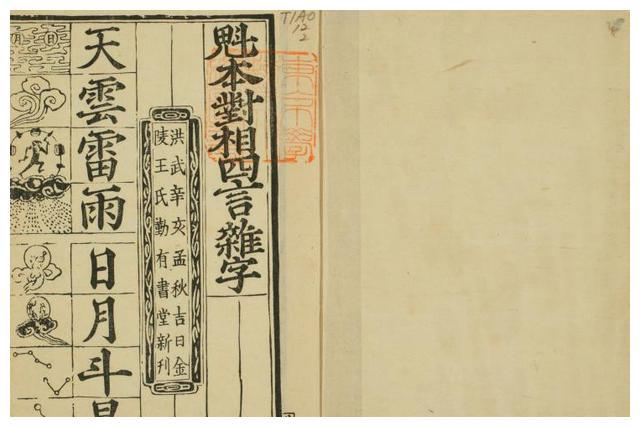 魁本對相四言雜字
洪武辛亥孟秋吉日金
陵王氏勤有書堂新刊
天雲雷雨
日月斗
TIAO
12
2